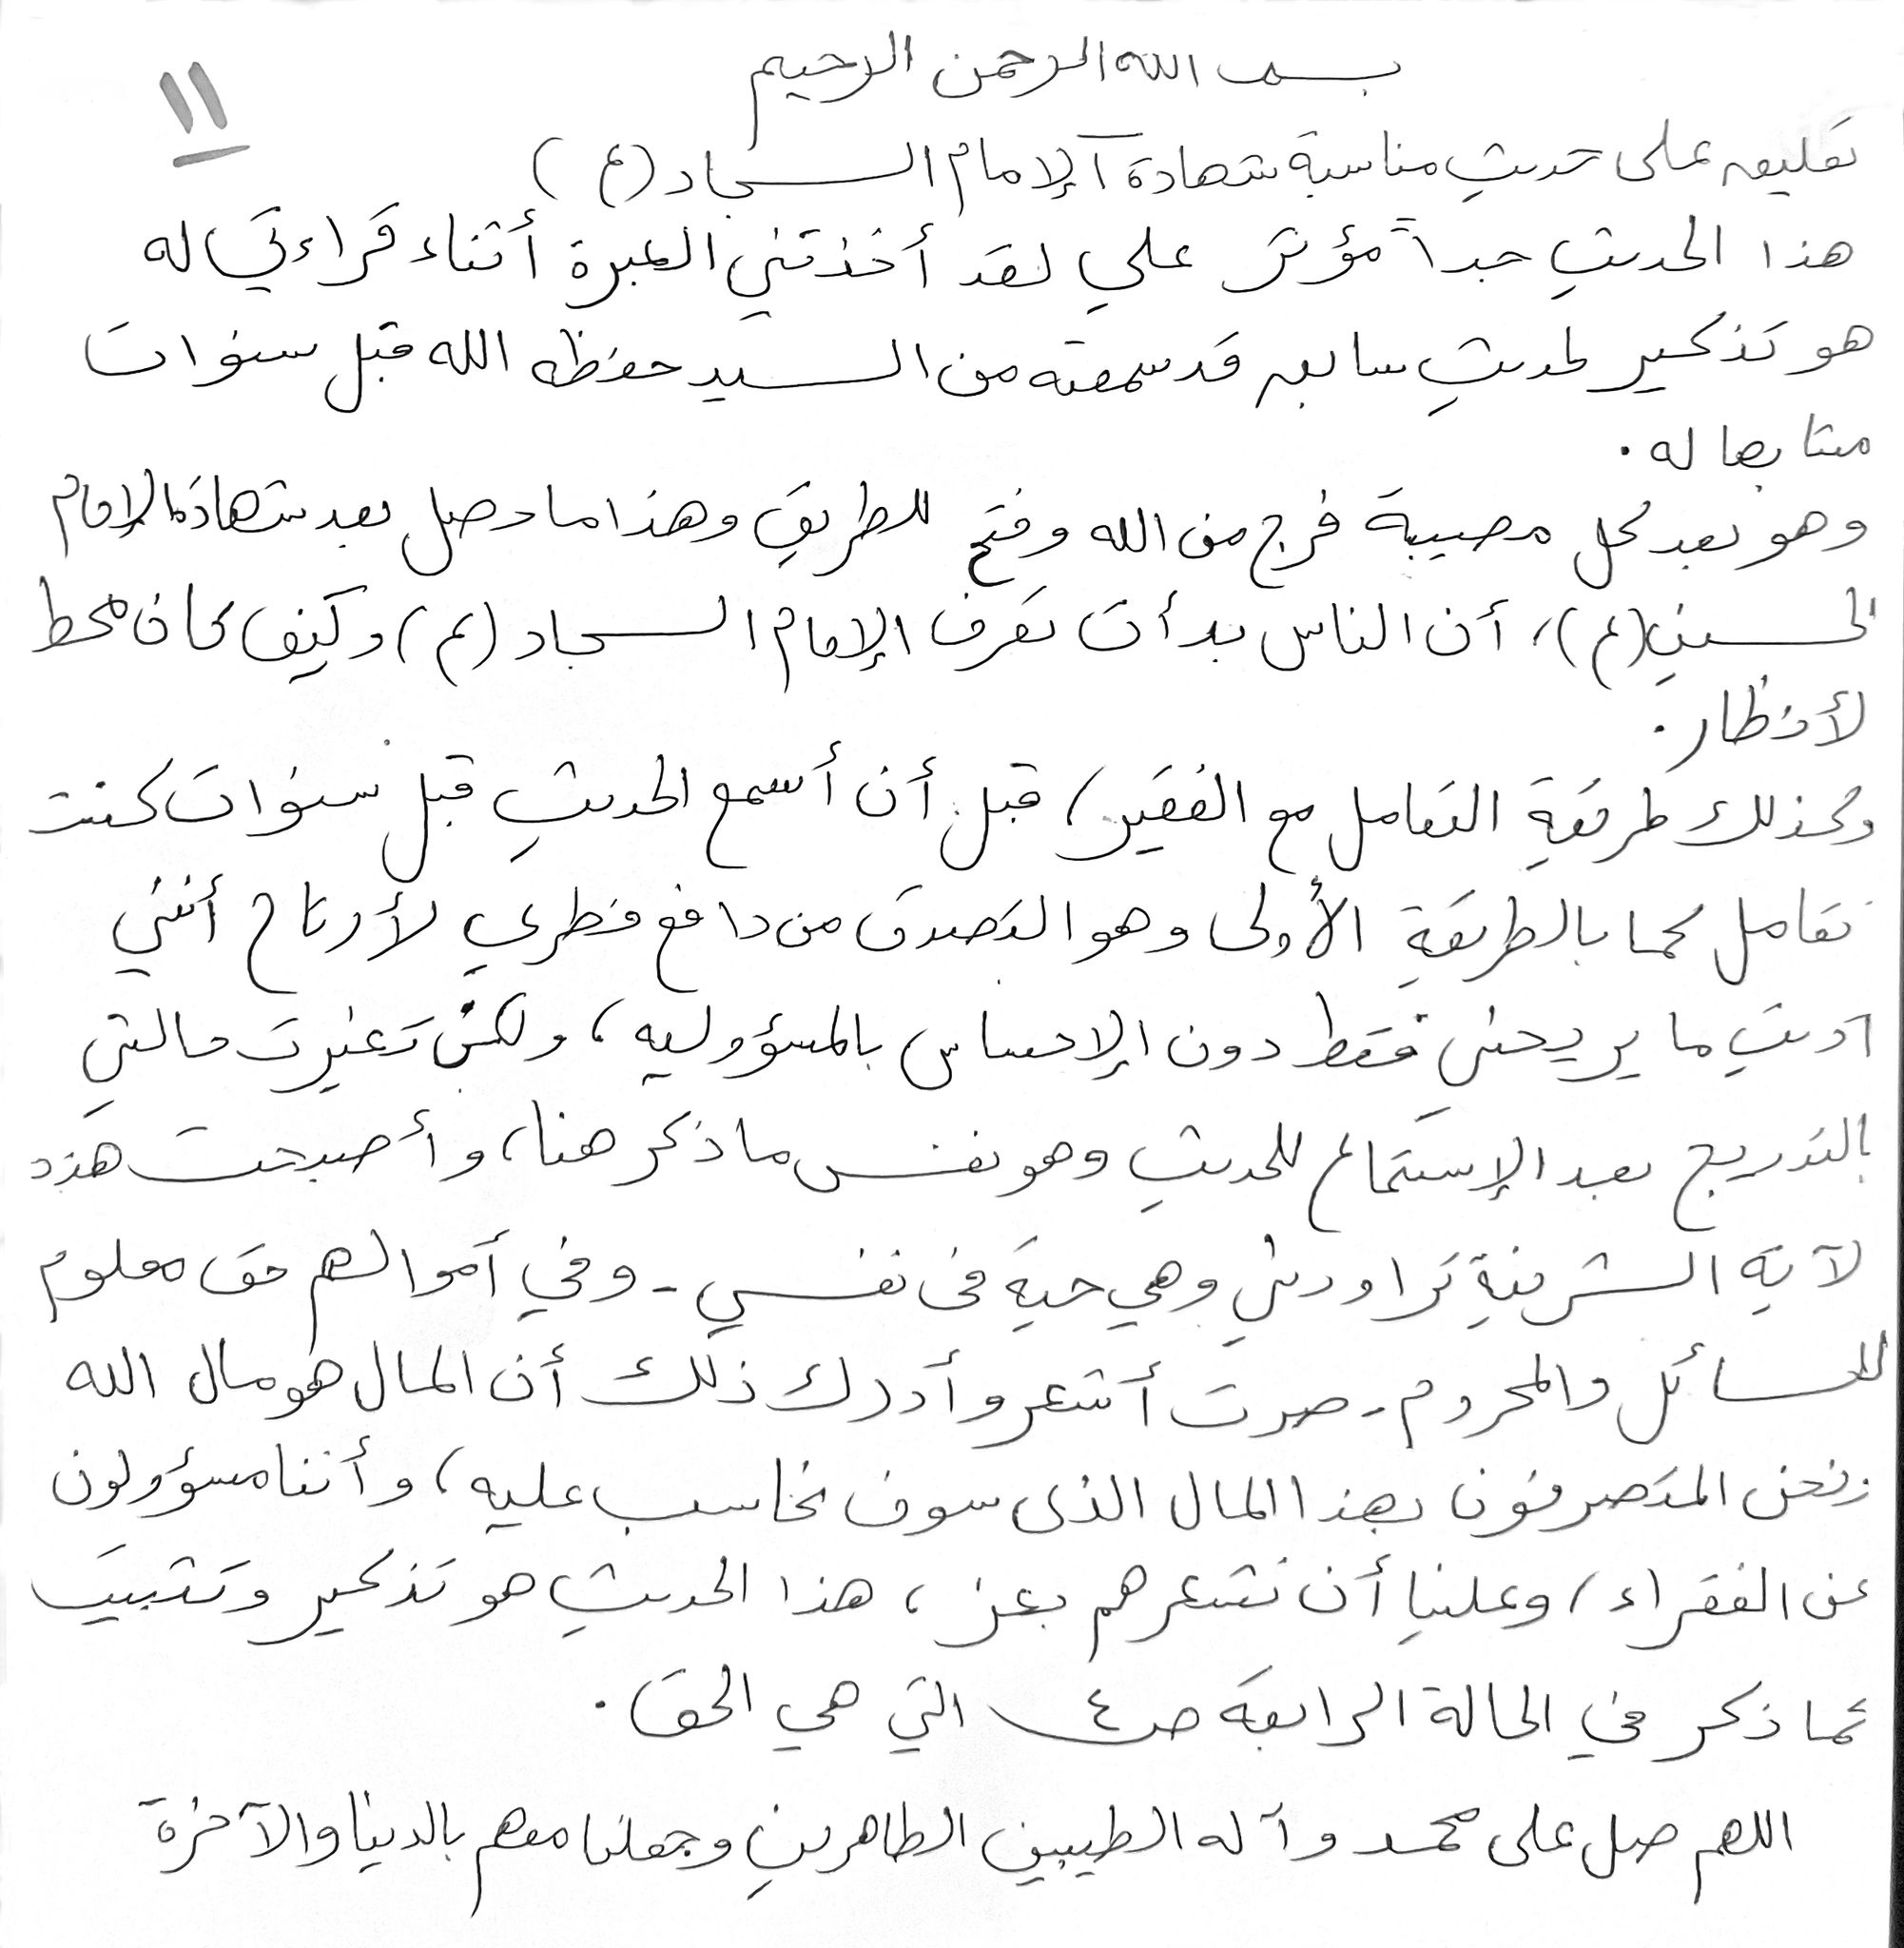 بسم الله الرحمن الرحيم
١١
تعليق على حديث مناسبة شهادة الإمام السجاد (ع)
هذا الحديث جداً مؤثر علي لقد أخذتني العبرة أثناء قراءتي له
هو تذكير لحديث سابق قد سمعته من السيد حفظه الله قبل سنوات
مشابها له.
وهو بعد كل مصيبة فرج من الله وفتح للطريق وهذا ما حصل بعد شهادة الإمام
الحسين (ع)، أن الناس بدأت تعرف الإمام السجاد (ع) وكيف كان محط
لأنظار.
وكذلك طريقة التعامل مع الفقير، قبل أن أسمع الحديث قبل سنوات كنت
تعامل كما بالطريقة الأولى وهو التصدق من دافع فطري لأرتاح أنني
أديت ما يريحني فقط دون الإحساس بالمسؤوليه، ولكن تغيرت حالتي
بالتدريج بعد الإستماع للحديث وهو نفس ما ذكر هنا، وأصبحت هذه
لآية الشريفة تراودني وهي حية في نفسي - وفي أموالهم حق معلوم
للسائل والمحروم - صرت أشعر وأدرك ذلك أن المال هو مال الله
ونحن المتصرفون بهذا المال الذي سوف نحاسب عليه، وأننا مسؤولون
عن الفقراء، وعلينا أن نشعرهم بعز، هذا الحديث هو تذكير وتثبيت
كما ذكر في الحالة الرابعة ص٤ التي هي الحق.
اللهم صل على محمد وآله الطيبين الطاهرين وجعلنا معهم بالدينا والآخرة